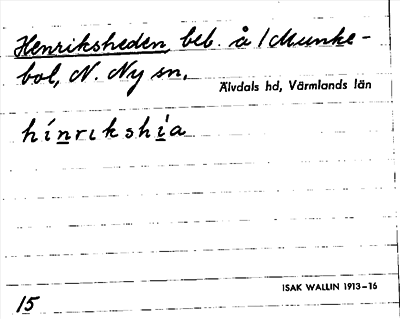 Henriksheden, beb. å /Munke-
bol, N. Ny sn.
Älvdals hd, Värmlands län
hínrıkshi̇́a
ISAK WALLIN 1913–16
15